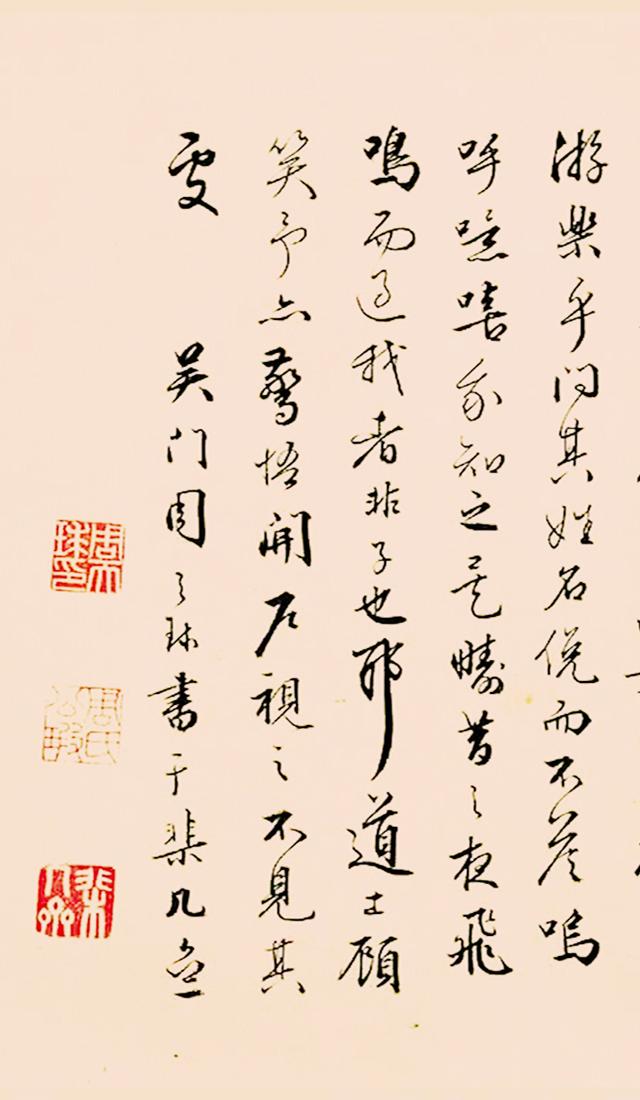 游樂乎問其姓名俛而不答嗚
呼噫嘻我知之矣疇昔之夜飛
鳴而過我者非子也耶道士顧
笑予亦驚悟開戶視之不見其
處 吳門周天球書于棐几
周天球印
周氏公瑕